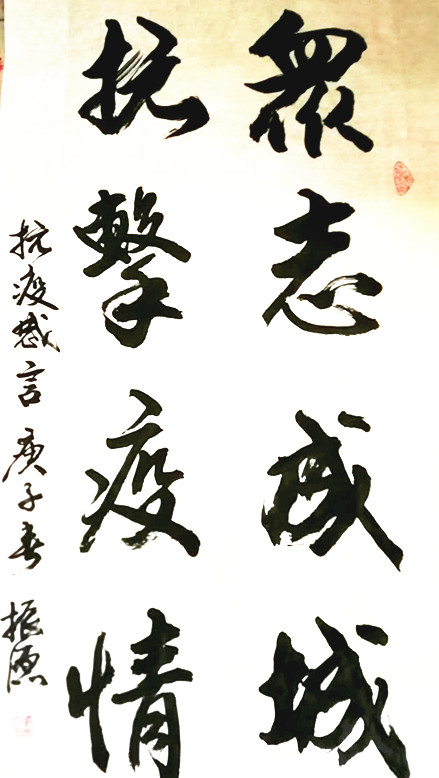 眾志成城
抗擊疫情
抗疫感言 庚子春 振源